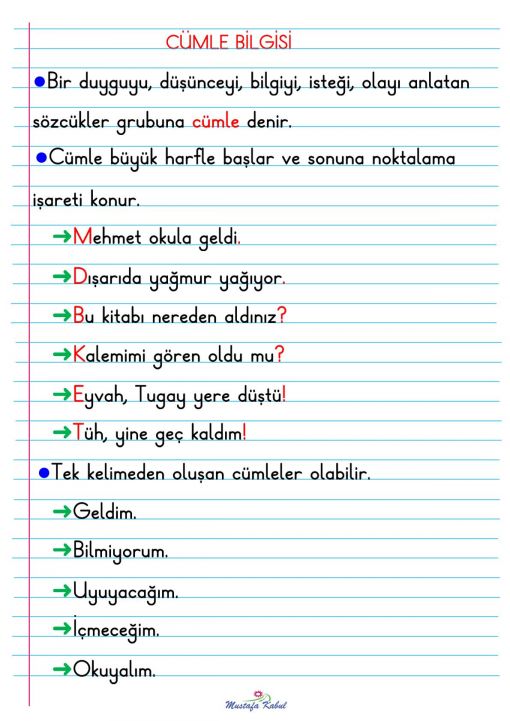 CÜMLE BİLGİSİ
●Bir duyguyu, düşünceyi, bilgiyi, isteği, olayı anlatan
sözcükler grubuna cümle denir.
●Cümle büyük harfle başlar ve sonuna noktalama
işareti konur.
➜Mehmet okula geldi.
➜Dışarıda yağmur yağıyor.
➜Bu kitabı nereden aldınız?
➜Kalemimi gören oldu mu?
➜Eyvah, Tugay yere düştü!
➜Tüh, yine geç kaldım!
●Tek kelimeden oluşan cümleler olabilir.
➜Geldim.
➜Bilmiyorum.
➜Uyuyacağım.
➜İçmeceğim.
➜Okuyalım.
Mustafa Kabul